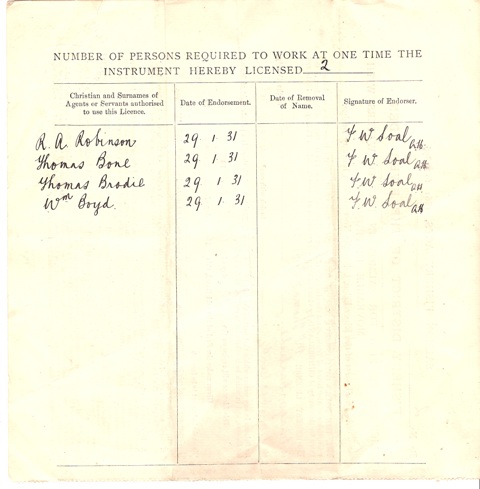 NUMBER OF PERSONS REQUIRED TO WORK AT ONE TIME THE
INSTRUMENT HEREBY LICENSED 2
Christian and Surnames of
Agents or Servants authorised
to use this Licence.
Date of Endorsement.
Date of Removal
of Name.
Signature of Endorser.
R. A. Robinson 29 1 31 F W Soal
Thomas Bone 29 1 31 F W Soal
Thomas Brodie 29 1 31 F W Soal
Wm Boyd. 29 1 31 F W Soal